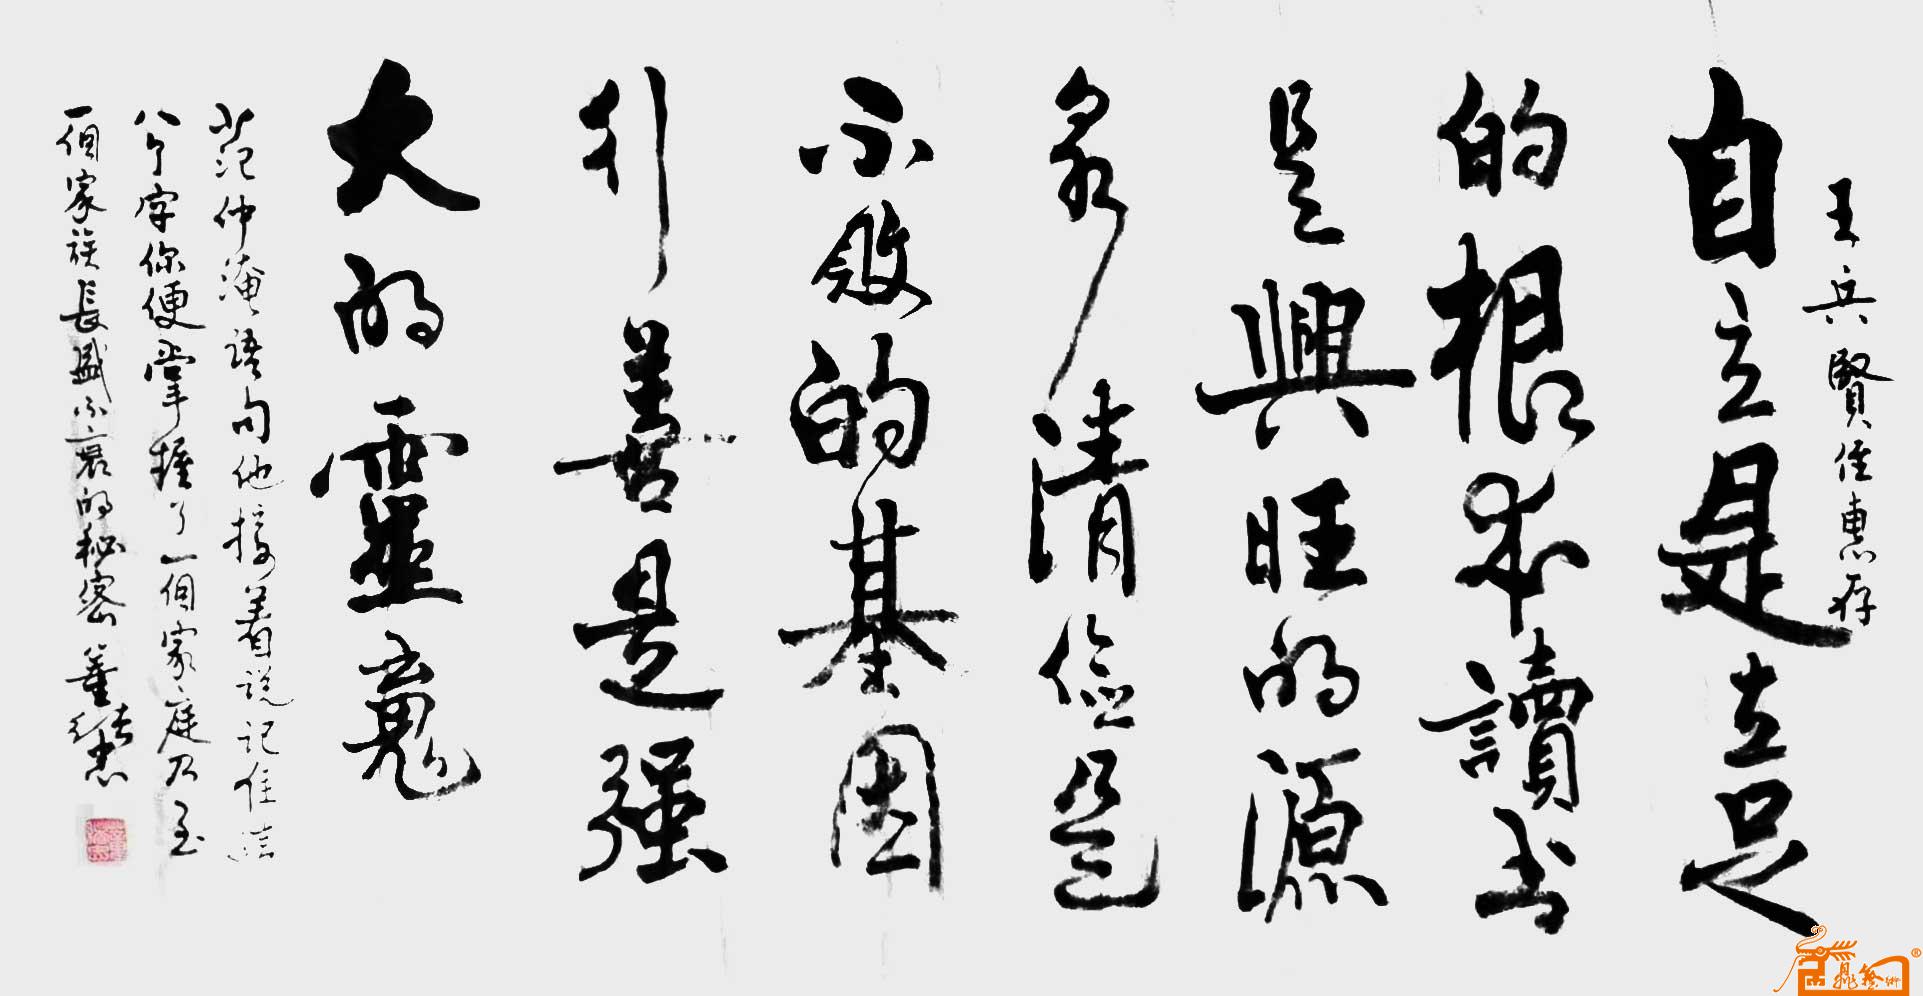 王兵賢侄惠存
自立是立足
的根本讀书
是興旺的源
泉清儉是
不敗的基因
行善是强
大的靈魂
北范仲淹語句他接着说记住這
八个字你便掌握了一個家庭乃至
一個家族長盛不衰的秘密董